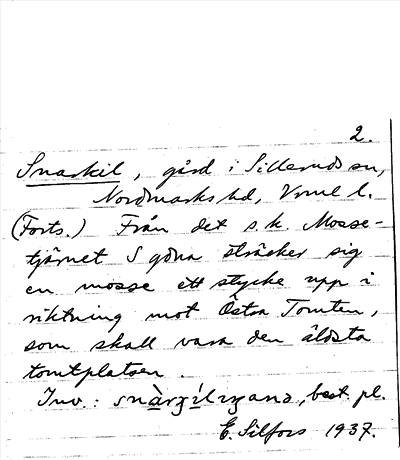 2.
Snarkil, gård i Sillerud sn,
Nordmarks hd, Vrml l.
(Forts.) Från det s.k. Mosse-
tjärnet S gdna sträcker sig
en mosse ett stycke upp i
riktning mot Östra Tomten,
som skall vara den äldsta
tomtplatsen.
Inv.: best. pl.
E. Silfors 1937.